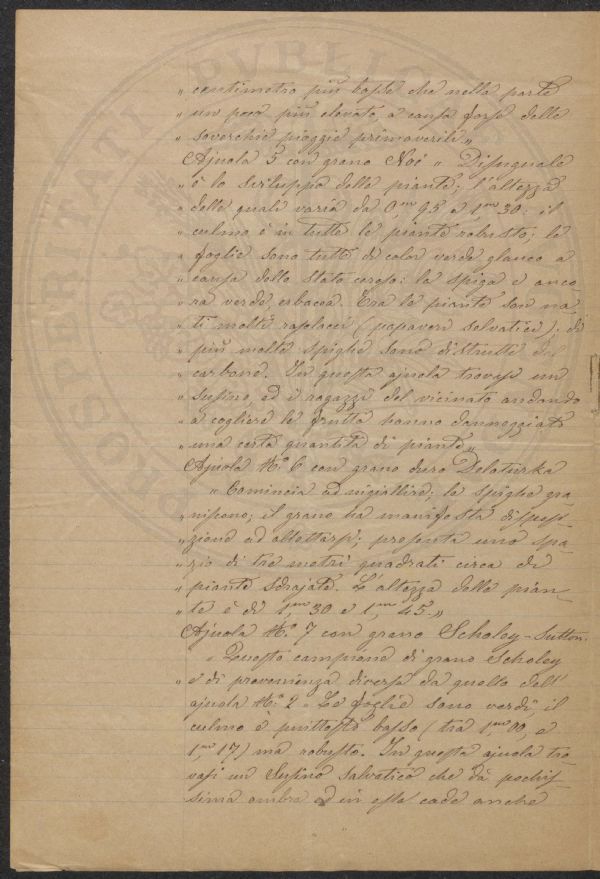 PVBLICO
PROSPERITATI
„ centimetro più basse che nella parte
„ un poco più elevata, a causa forse delle
„ soverchie pioggie primaverili „
Ajuola 5 con grano Noé „ Disuguale
„ è lo sviluppo delle piante; l'altezza
„ delle quali varia da 0,m 95 a 1,m 30: il
„ culmo è in tutte le piante robusto; le
„ foglie sono tutte di color verde glauco a
„ causa dello stato ceroso: la spiga è anco-
„ ra verde, erbacea. Tra le piante son na-
„ ti molti rosolacci (papaveri selvatici); di
„ più molte spighe sono distrutte dal
„ carbone. In questa ajuola trovasi un
„ susino, ed i ragazzi del vicinato andando
„ a cogliere le frutta hanno danneggiato
„ una certa quantità di piante „
Ajuola N.o 6 con grano duro Delaturka
„ Comincia ad ingiallire; le spighe gra-
„ niscono; il grano ha manifesta disposi-
„ zione ad allettarsi; presenta uno spa-
„ zio di tre metri quadrati circa di
„ piante sdrajate. L'altezza delle pian-
„ te è di 1,m 30 a 1,m 45. „
Ajuola N.o 7 con grano Scholey-Sutton.
„ Questo campione di grano Scholey
„ è di provenienza diversa da quello dell'
ajuola N.o 2. Le foglie sono verdi, il
culmo è piuttosto basso (tra 1,m 00, e
1,m 17) ma robusto. In questa ajuola tro-
vasi un Susino salvatico che dà pochis-
sima ombra ed in essa cade anche